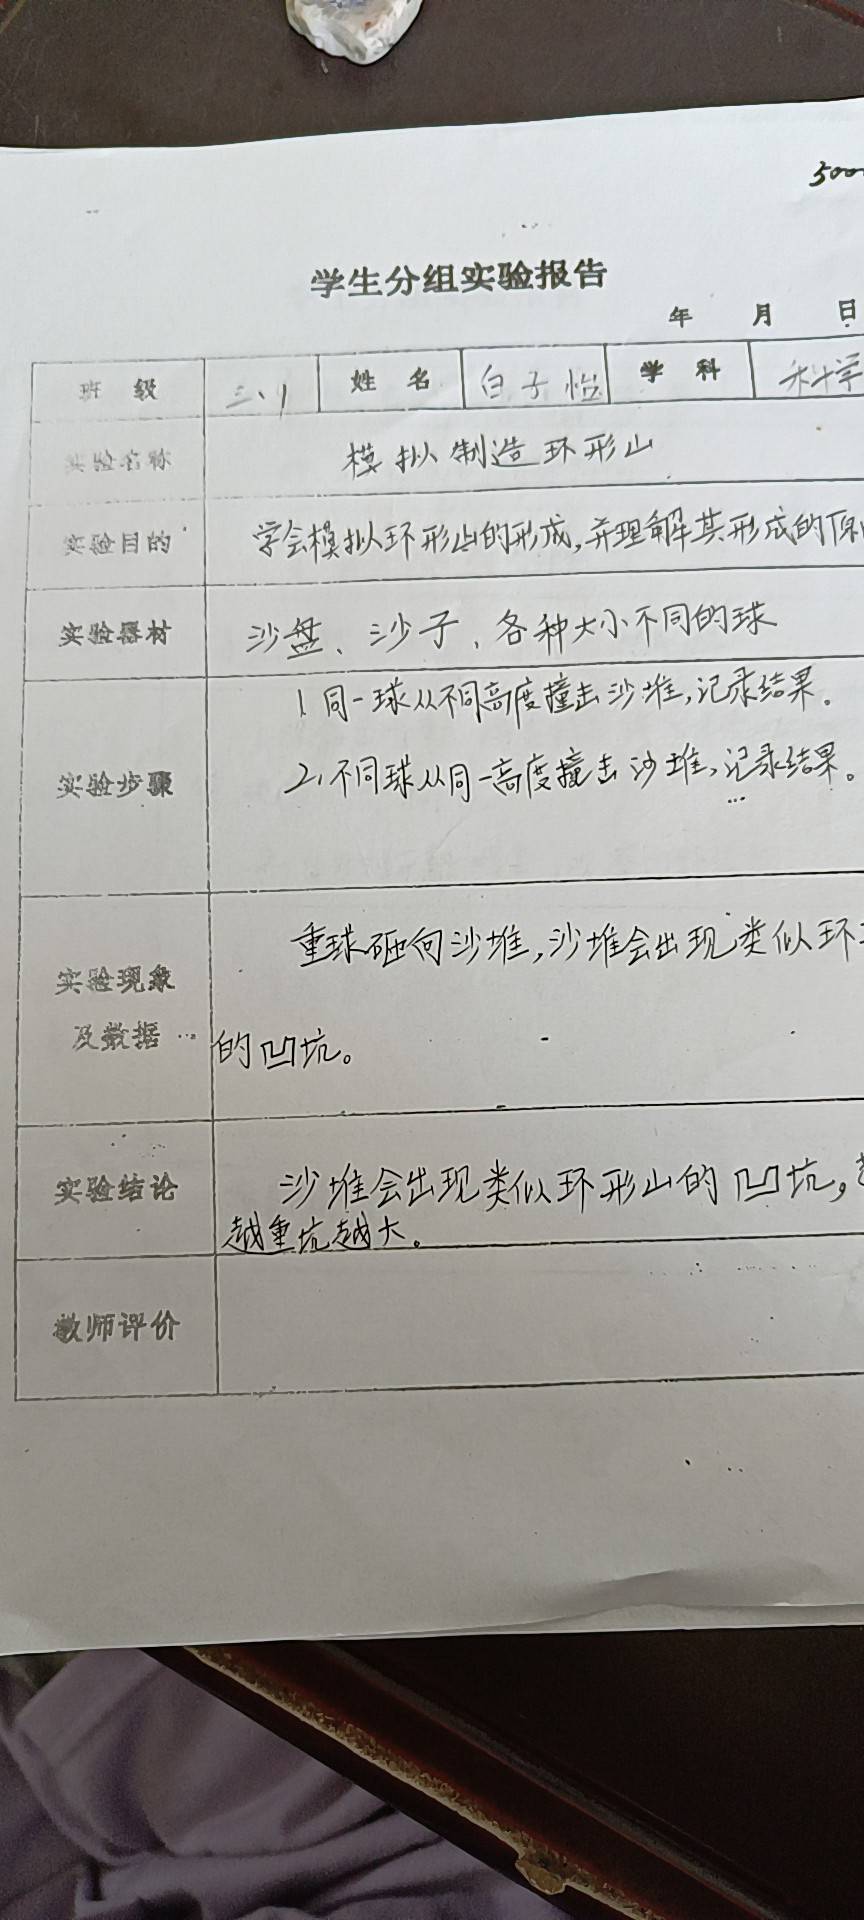 500
学生分组实验报告
年 月 日
班 级 三、1 姓 名 白子怡 学 科 科学
实验名称 模拟制造环形山
实验目的 学会模拟环形山的形成,并理解其形成的原
实验器材 沙盘、沙子、各种大小不同的球
1 同一球从不同高度撞击沙堆,记录结果。
实验步骤 2、不同球从同一高度撞击沙堆,记录结果。
实验现象 重球砸向沙堆,沙堆会出现类似环
及数据 的凹坑。
实验结论 沙堆会出现类似环形山的凹坑,
越重坑越大。
教师评价